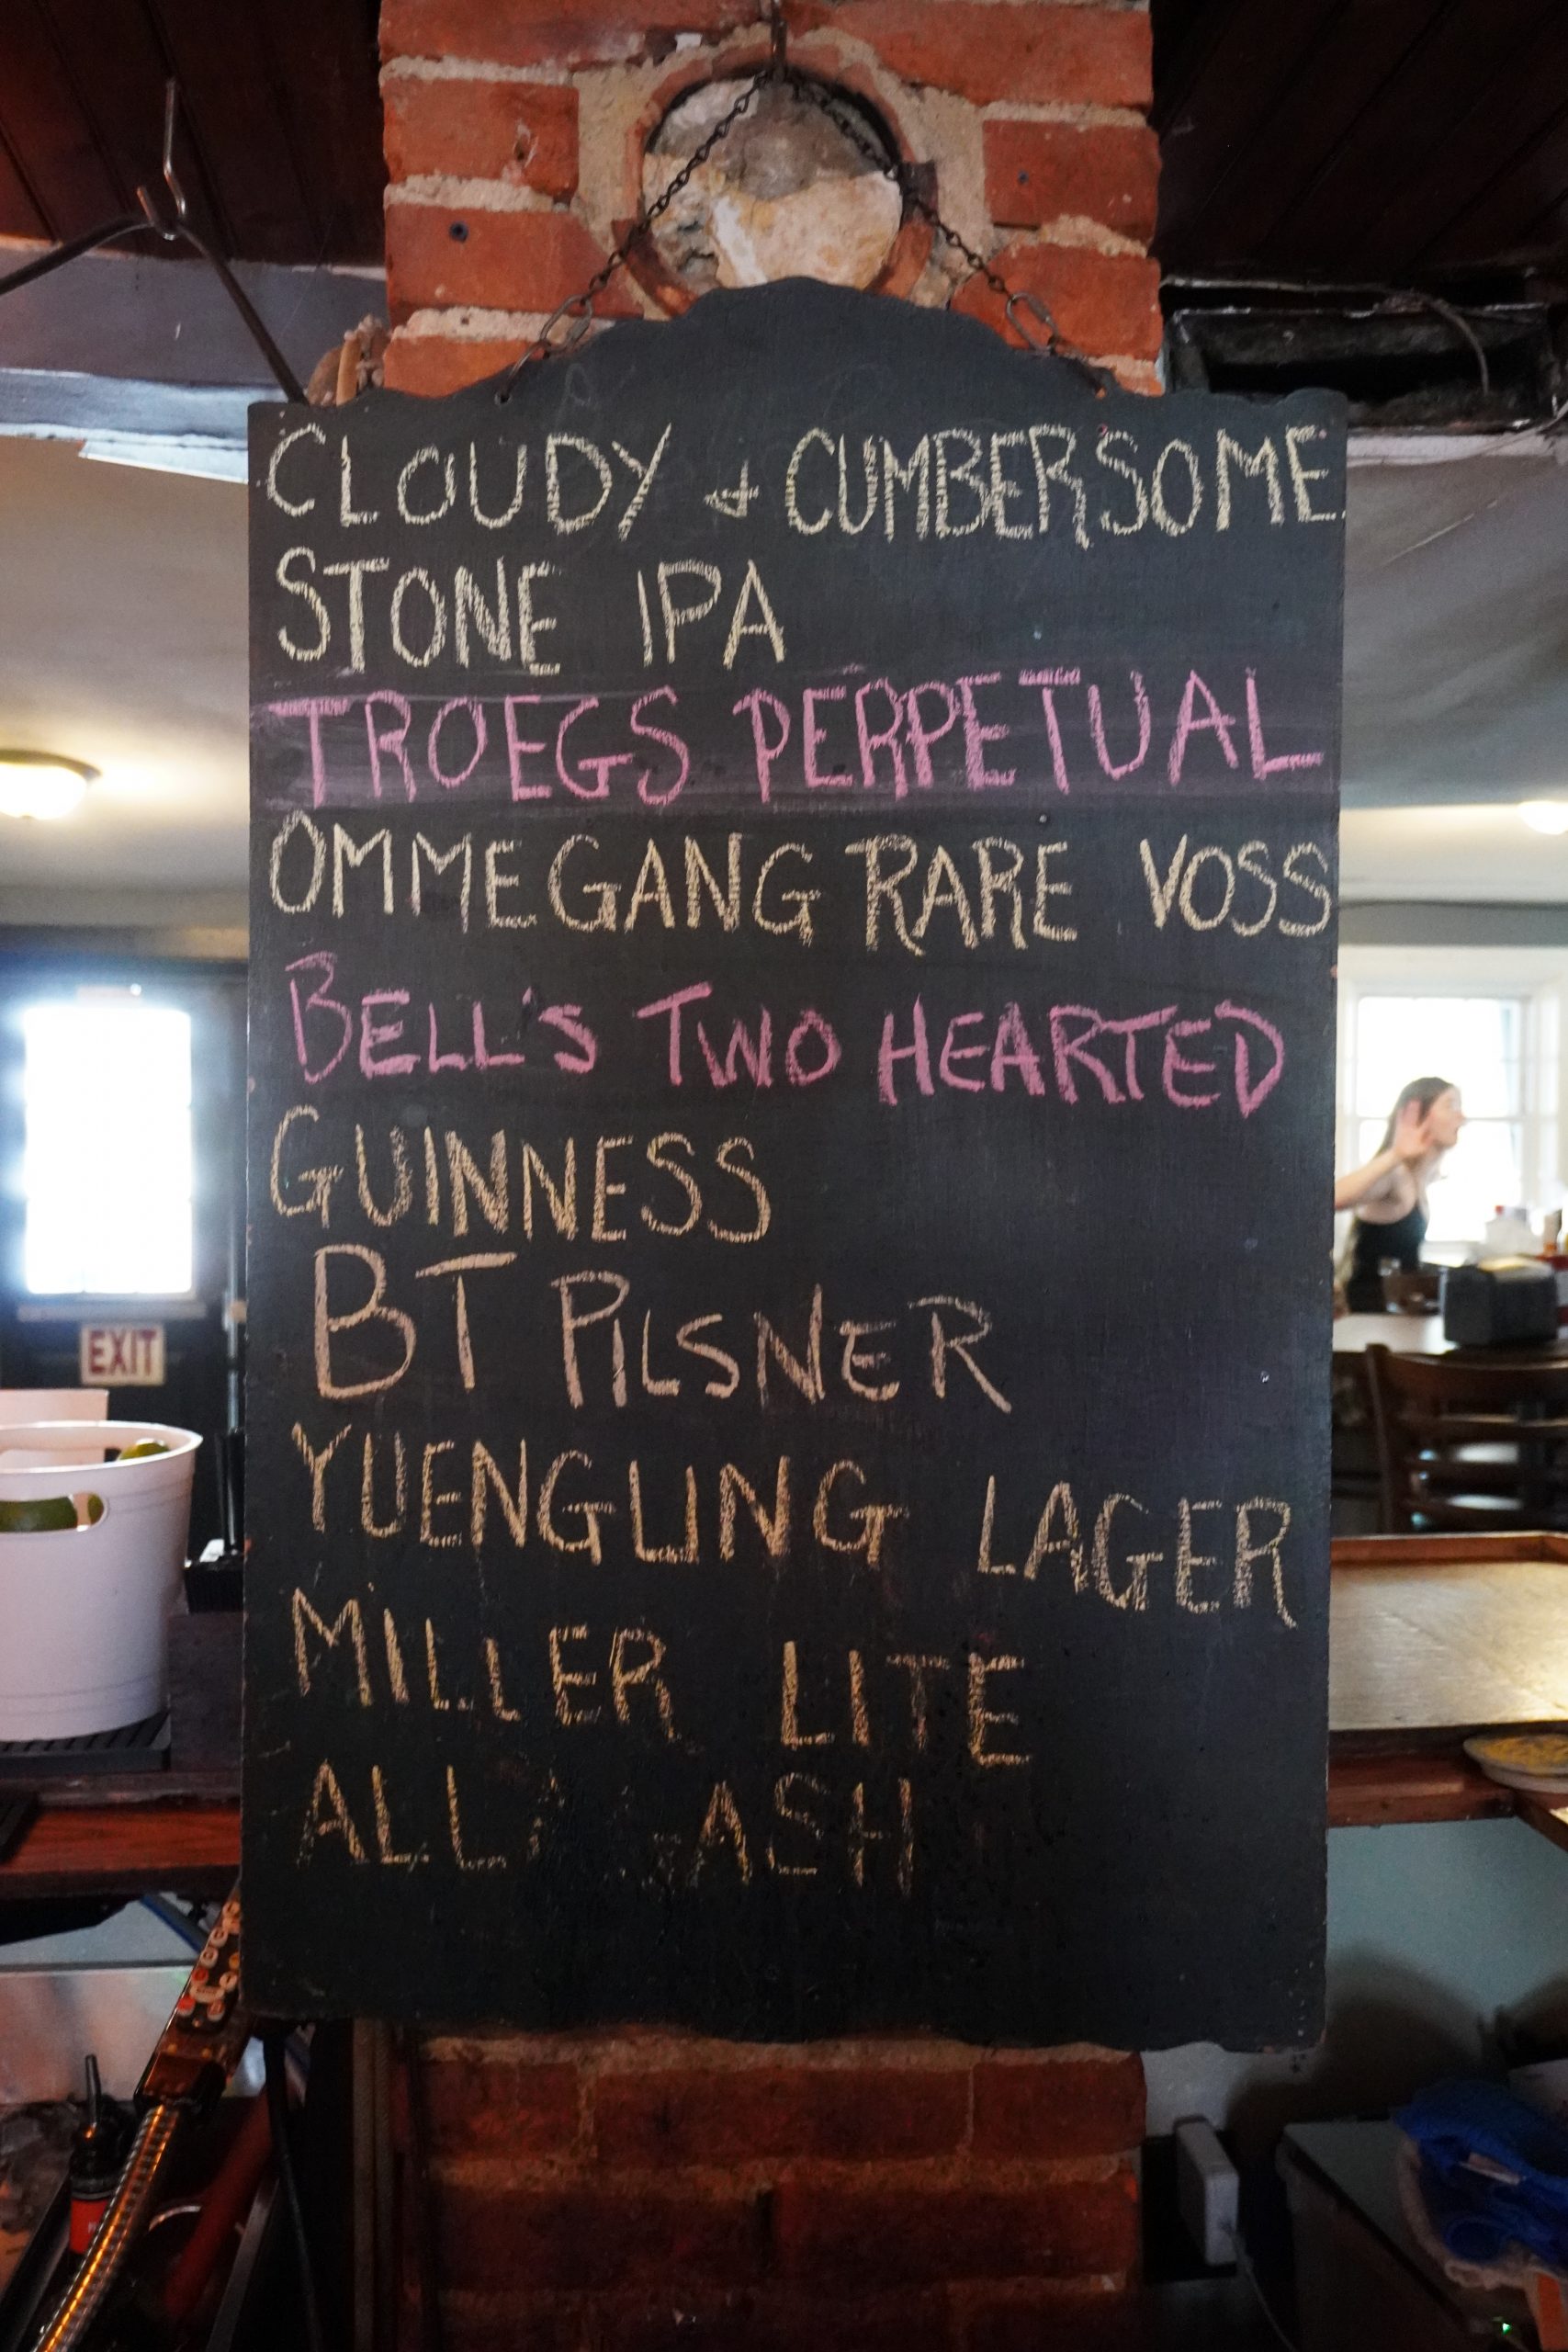 CLOUDY & CUMBERSOME
STONE IPA
TROEGS PERPETUAL
OMMEGANG RARE VOSS
BELL'S TWO HEARTED
GUINNESS
BT PILSNER
YUENGLING LAGER
MILLER LITE
EXIT